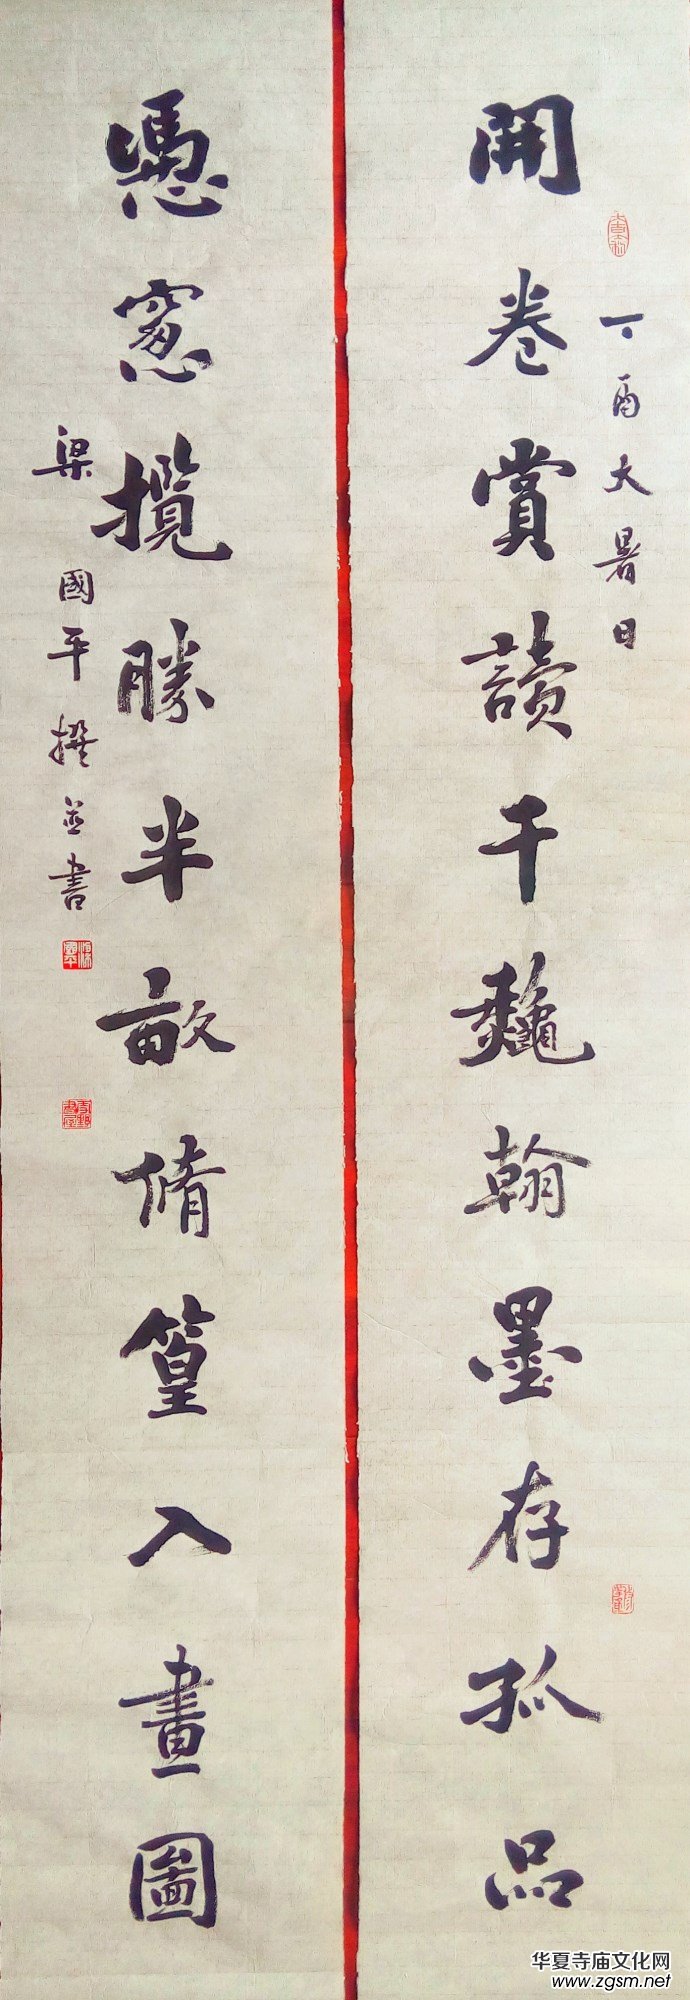 開卷賞讀千龝翰墨存孤品
丁酉大暑日
憑窻攬勝半畝脩篁入畫圖
梁國平撰並書
华夏寺庙文化网
www.zgsm.net